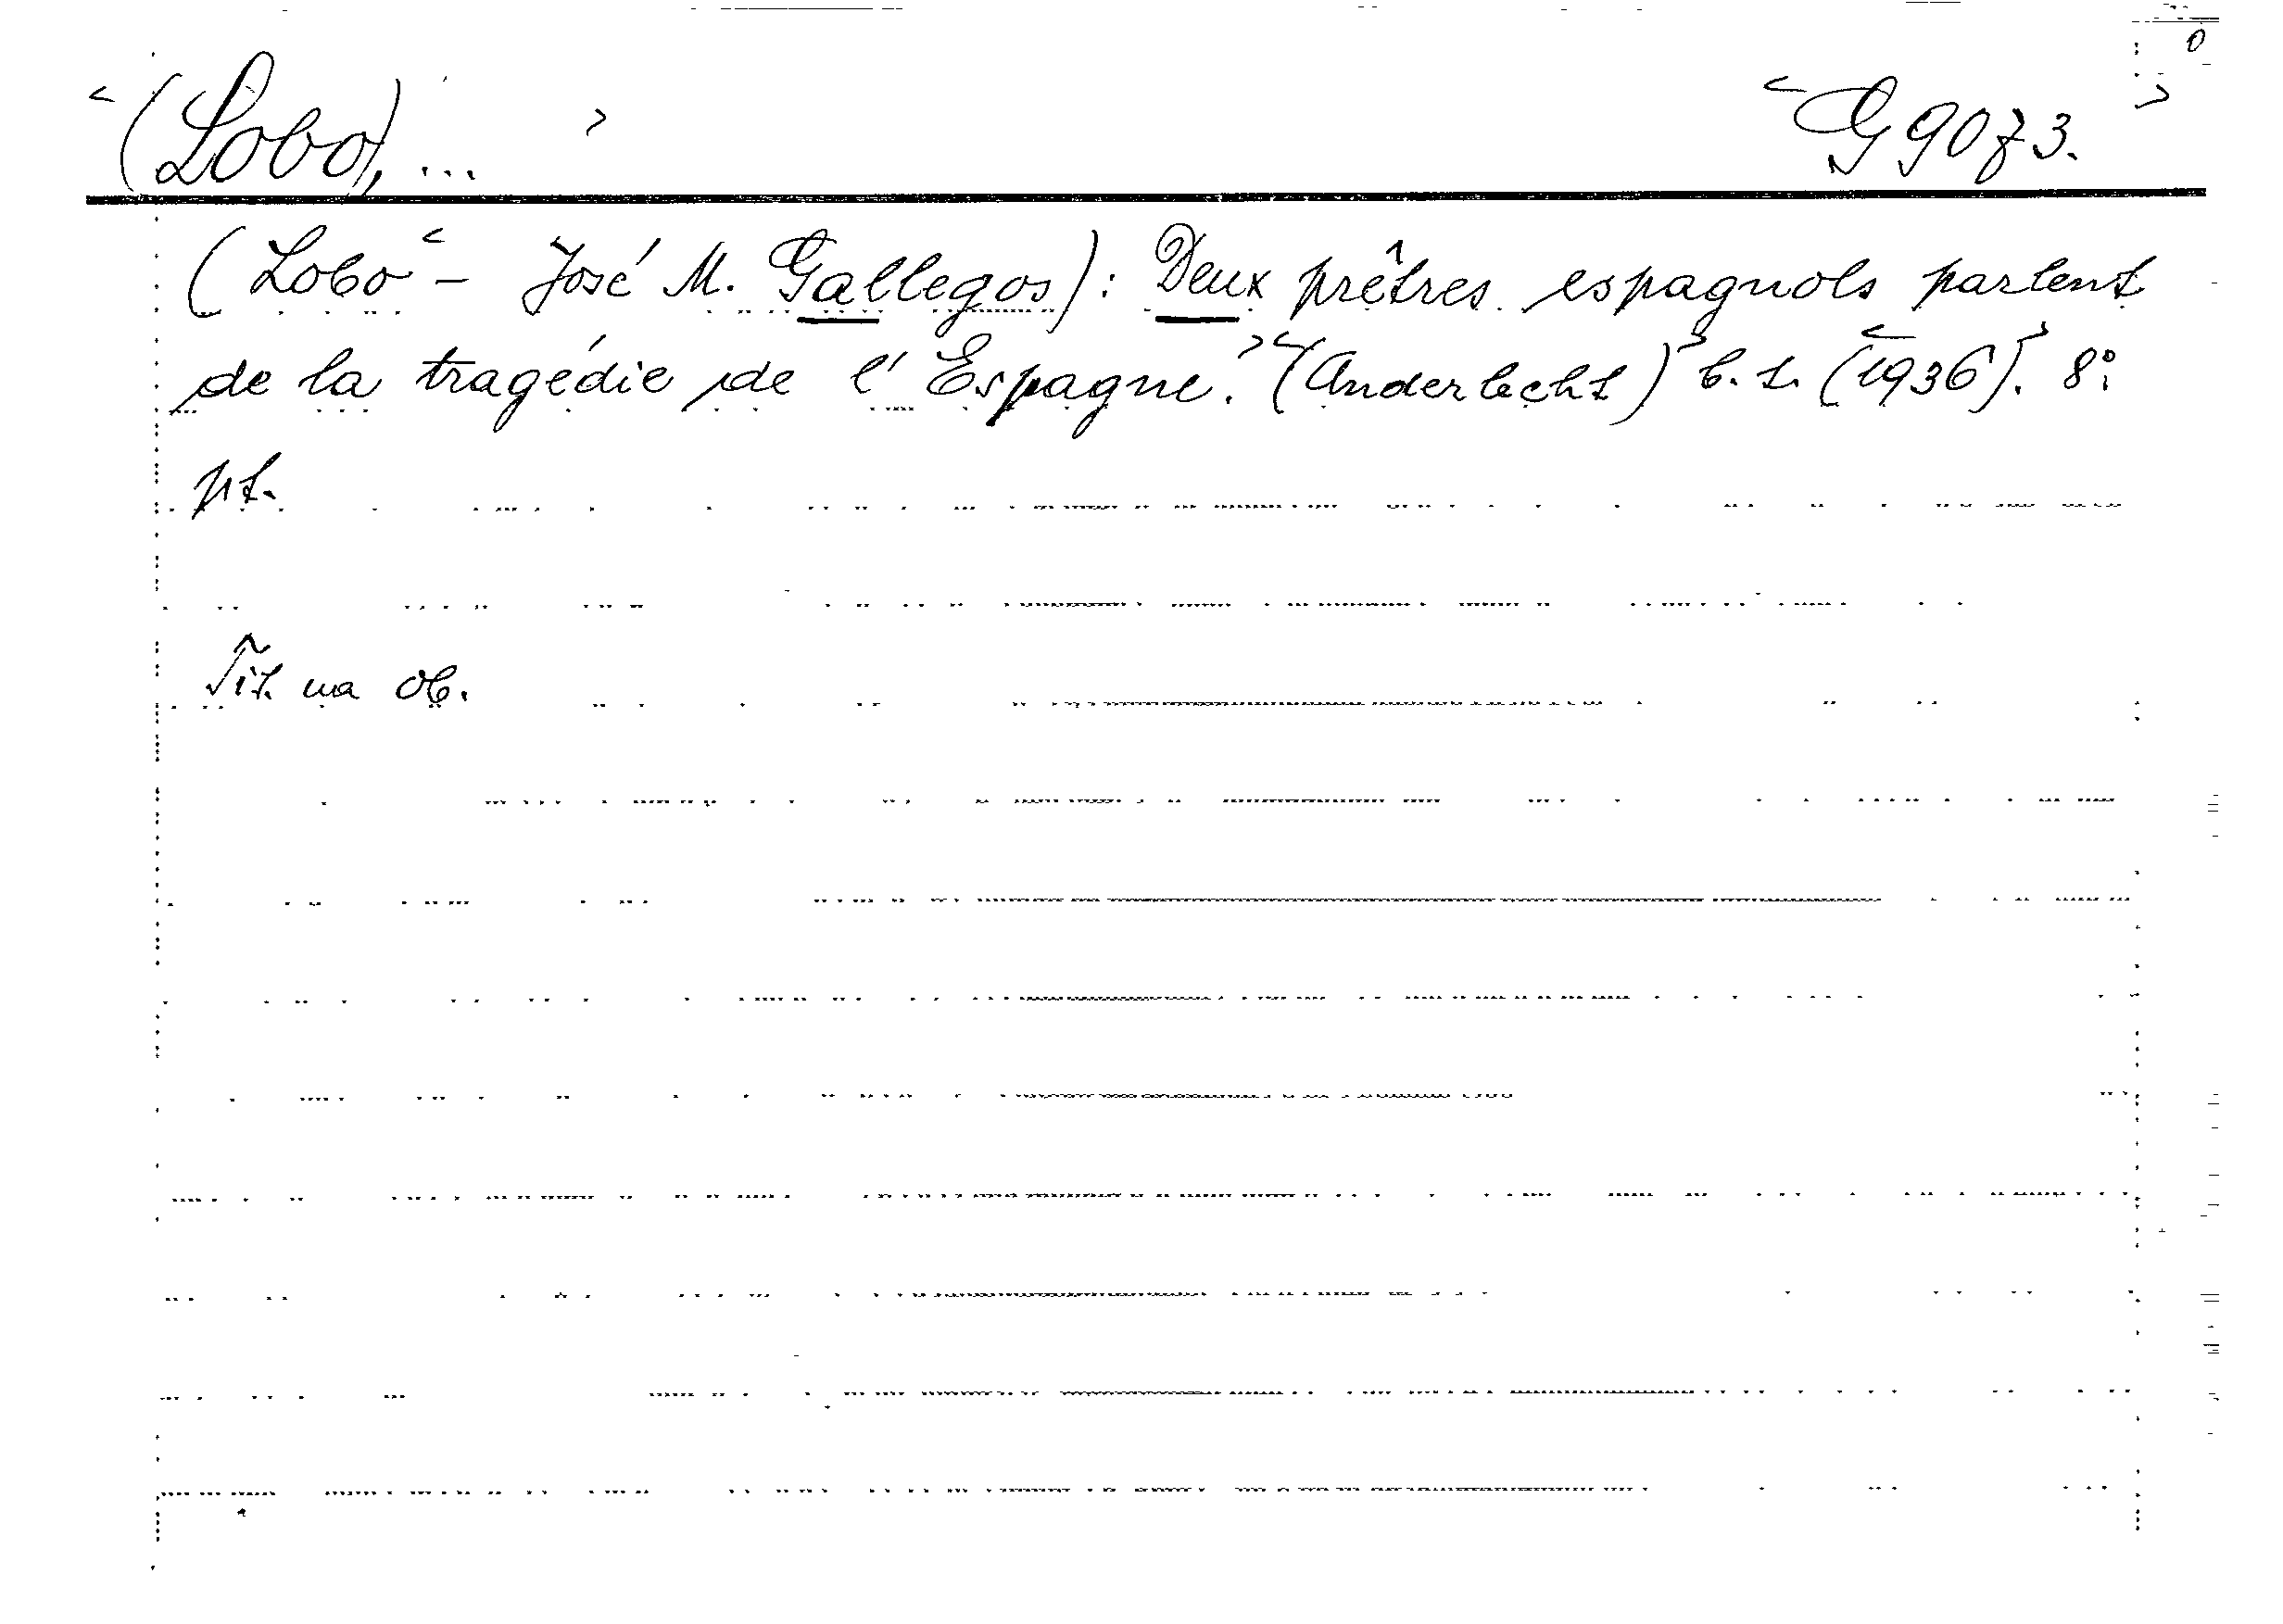 < (Lobo), ... > < G 9073. >
(Lobo < – José M. Gallegos): Deux prêtres espagnols parlent
de la tragédie de l'Espagne. > < (Anderlecht) > b. t. < (1936). > 8°.
pt.
Tit. na ob.